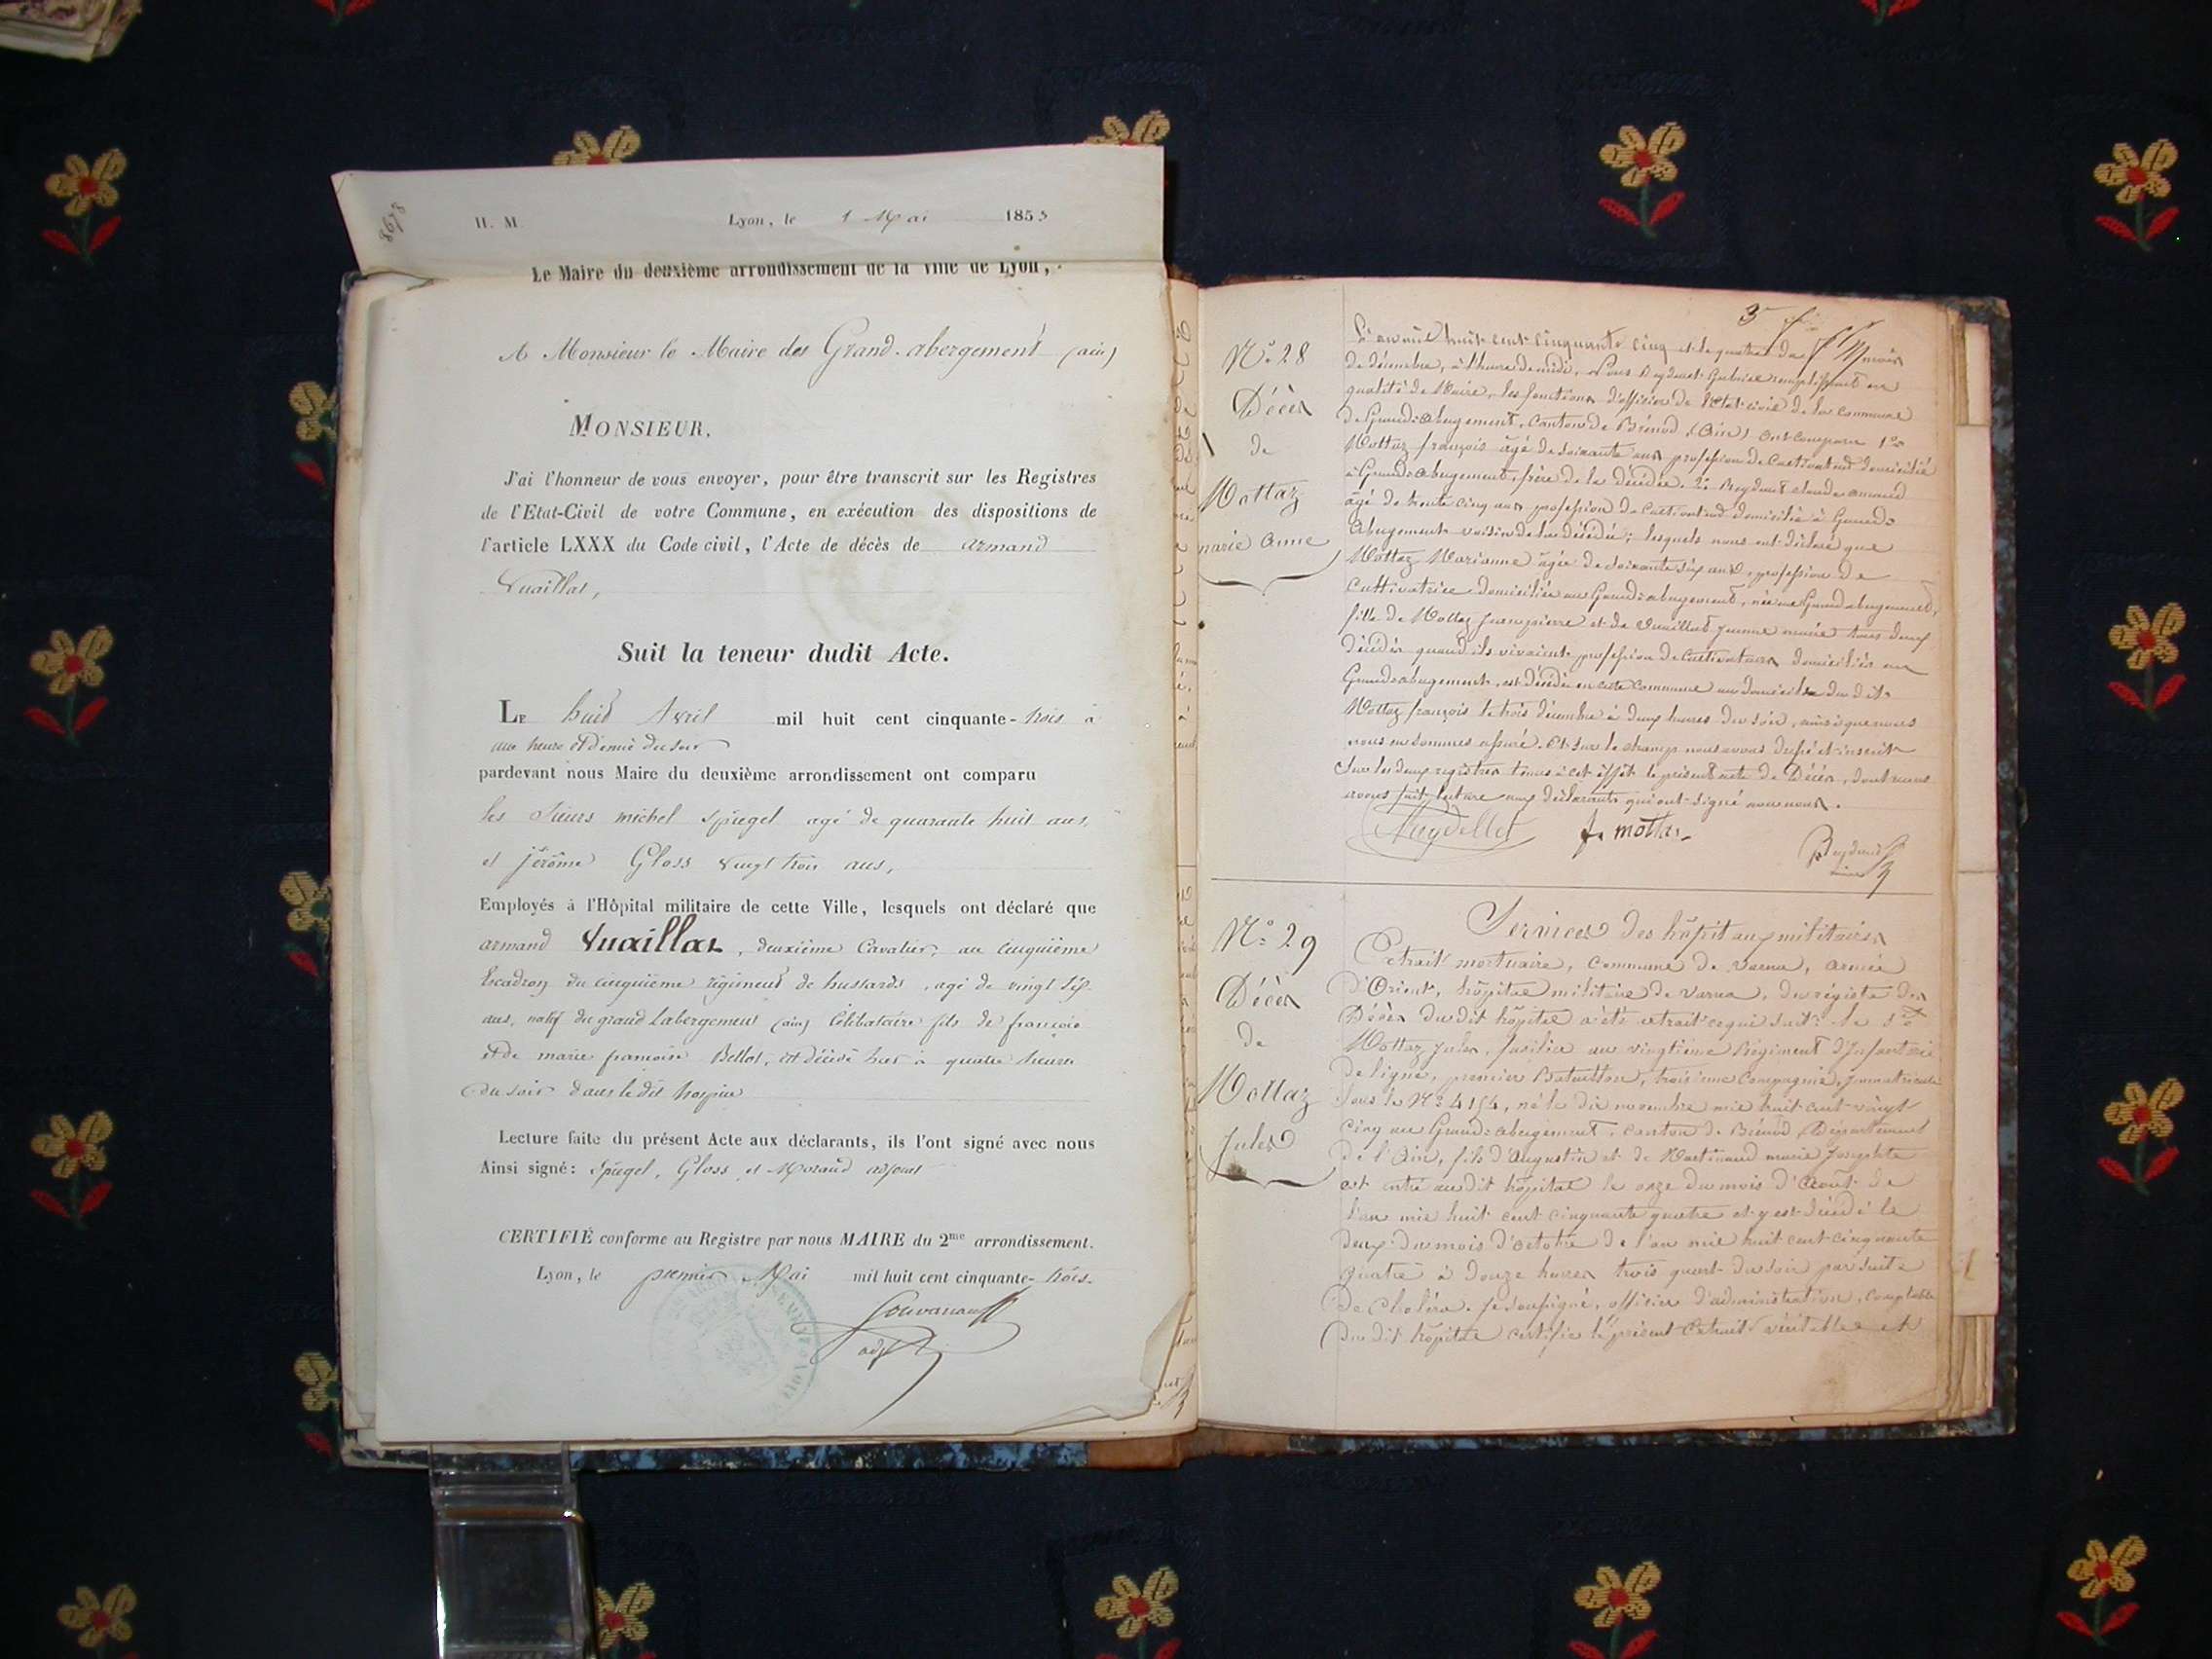 8678
H. M.
Lyon, le 1 Mai 1853
Le Maire du deuxième arrondissement de la Ville de Lyon,
A Monsieur le Maire des Grand. abergement (ain)
MONSIEUR,
J'ai l'honneur de vous envoyer, pour être transcrit sur les Registres
de l'Etat-Civil de votre Commune, en exécution des dispositions de
l'article LXXX du Code civil, l'Acte de décès de armand
Vuaillat,
Suit la teneur dudit Acte.
LE huit Avril mil huit cent cinquante-trois à
une heure et demie du soir
pardevant nous Maire du deuxième arrondissement ont comparu
les Sieurs michel Spiegel agé de quarante huit ans,
et jérôme Gloss vingt trois ans,
Employés à l'Hôpital militaire de cette Ville, lesquels ont déclaré que
armand Vuaillat, deuxième Cavalier, au cinquième
Escadron du cinquième régiment de hussards, agé de vingt sept
ans, natif du grand Labergement (ain) Célibataire fils de françois
et de marie françoise Bellot, est décédé hier à quatre heures
du soir dans le dit hospice
Lecture faite du présent Acte aux déclarants, ils l'ont signé avec nous
Ainsi signé: Spiegel, Gloss, et Morand adjoint
CERTIFIÉ conforme au Registre par nous MAIRE du 2me arrondissement.
Lyon, le premier Mai mil huit cent cinquante-trois.
adjt
3
N° 28
Décès
de
Mottaz
marie Anne
L'an mil huit cent cinquante cinq et le quatre du mois
de décembre, à l'heure de midi, Nous Reydellet remplissant en
qualité de Maire, les fonctions d'officier de l'Etat-civil de la commune
de Grand-abergement, Canton de Brénod, (Ain) ont comparu 1°
Mottaz françois âgé de soixante ans profession de Cultivateur domicilié
à Grand-abergement, frère de la décédée. 2° claude armand
âgé de trente cinq ans profession de Cultivateur domicilié à Grand-
Abergement voisin de la décédée; lesquels nous ont déclaré que
Mottaz Marianne âgée de soixante six ans, profession de
Cultivatrice domiciliée au Grand-abergement, née au Grand abergement,
fille de Mottaz jean pierre et de Vuaillat jeanne marie tous deux
décédés quand ils vivaient profession de Cultivateurs domiciliés au
Grand-abergement, est décédée en cette commune au domicile du dit
Mottaz françois le trois décembre à deux heures du soir, ainsi que nous
nous en sommes assuré. Et sur le champ nous avons dressé et inscrit
Sur les deux registres tenus à cet effet le présent acte de Décès, dont nous
avons fait lecture aux déclarants qui ont signé avec nous.
Reydellet f. mottaz
N° 29
Décès
de
Mottaz
Jules
Services des hôpitaux militaires
Extrait mortuaire, commune de Varna, armée
d'Orient, hôpital militaire de Varna, du régistre des
Décès du dit hôpital a été extrait ce qui suit: le Sr
Mottaz Jules, fusilier au vingtième Régiment d'Infanterie
de ligne, premier Bataillon, troisième Compagnie, immatriculé
Sous le N° 4154, né le dix novembre mil huit cent vingt
cinq au Grand-abergement, canton de Brénod, Département
de l'Ain, fils d'Augustin et de Martinand marie Josephte
est entré au dit hôpital le onze du mois d'Août de
l'an mil huit cent cinquante quatre et y est décédé le
deux du mois d'octobre de l'an mil huit cent cinquante
quatre à douze heures trois quart du soir par suite
de choléra. Je soussigné, officier d'administration, comptable
du dit hôpital certifie le présent Extrait véritable et